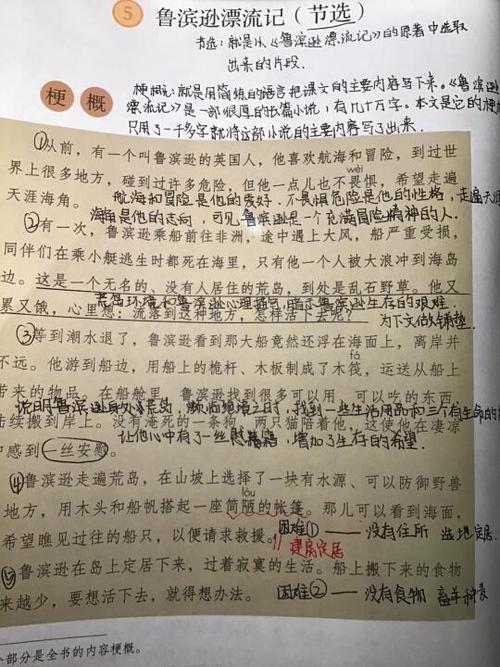 5 鲁滨逊漂流记（节选）
节选：就是从《鲁滨逊漂流记》的原著中选取
出来的片段.
梗 概
梗概：就是用简练的语言把课文的主要内容写下来。《鲁滨
漂流记》是一部很厚的长篇小说，有几十万字。本文是它的梗
只用了一千多字就将这部小说的主要内容写了出来.
①从前，有一个叫鲁滨逊的英国人，他喜欢航海和冒险，到过世
wèi
界上很多地方，碰到过许多危险，但他一点儿也不畏惧，希望走遍
天涯海角。 航海和冒险是他的爱好.不畏惧危险是他的性格，走遍天涯
海角是他的志向，可见鲁滨逊是一个充满冒险精神的人.
②有一次，鲁滨逊乘船前往非洲，途中遇上大风，船严重受损，
同伴们在乘小艇逃生时都死在海里，只有他一个人被大浪冲到海岛
边。这是一个无名的、没有人居住的荒岛，到处是乱石野草。他又
荒岛环境和鲁滨逊心理描写，暗示鲁滨逊生存的艰难.
累又饿，心里想：流落到这种地方，怎样活下去呢？ 为下文做铺垫.
③等到潮水退了，鲁滨逊看到那大船竟然还浮在海面上，离岸并
fá
不远。他游到船边，用船上的桅杆、木板制成了木筏，运送从船上
带来的物品。在船舱里，鲁滨逊找到很多可以用、可以吃的东西，
说明鲁滨逊身处荒岛，濒临绝境之时，找到一些生活用品和三个有生命的
陆续搬到岸上。没有淹死的一条狗，两只猫陪着他，这使他在凄凉
让他心中有了一丝慰藉，增加了生存的希望.
中感到一丝安慰。
④鲁滨逊走遍荒岛，在山坡上选择了一块有水源、可以防御野兽
lòu
地方，用木头和船帆搭起一座简陋的帐篷。那儿可以看到海面，
希望瞧见过往的船只，以便请求救援。 困难① —— 没有住所
建房定居
⑤鲁滨逊在岛上定居下来，过着寂寞的生活。船上搬下来的食物
来越少，要想活下去，就得想办法。 困难② —— 没有食物
部分是全书的内容梗概。